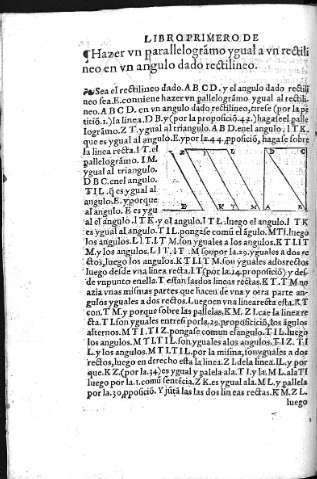 LIBRO PRIMERO DE
¶Hazer vn parallelogrãmo ygual a vn rectili
neo en vn angulo dado rectilineo.
Sea el rectilineo dado. A B C D. y el angulo dado rectili
neo sea. E. conuiene hazer vn pallelogrãmo ygual al rectili
neo. A B C D. en vn angulo dado rectilineo, tirese (por la pe
ticiõ. 1.) la linea. D B. y (por la proposiciõ. 42.) hagase el palle
logrãmo. Z T. ygual al triangulo. A B D. en el angulo. I T K.
que es ygual al angulo. E. y por la. 44. pposiciõ, hagase sobre
la linea recta. I T. el
pallelogrãmo. I M.
ygual al triangulo.
D B C. en el angulo.
T I L. q̃ es ygual al
angulo. E. y porque
al angulo. E es ygu
al el angulo. I T K. y el angulo. I T L. luego el angulo. I T K
es ygual al angulo. T I L. pongase comũ el ãgulo. M T I. luego
los angulos. L I T. I T M. son yguales a los angulos. K T I. I T
M. y los angulos. L I T. I T M (son por la. 29. yguales a dos re
ctos) luego los angulos. K T I. I T M. son yguales a dos rectos
luego desde vna linea recta. I T (por la. 14. proposiciõ) y des
de vn punto en ella. T estan las dos lineas rectas. K T. T M. no
azia vnas mismas partes que hazen de vna y otra parte an-
gulos yguales a dos rectos. Luego en vna linea recta esta. K T
con. T M. y porque sobre las pallelas. K M. Z I. cae la linea re
cta. T I. son yguales entre si por la. 29. proposicion, los ãgulos
alternos. M T I. T I Z. pongase comun el angulo. T I L. luego
los angulos. M T I. T I L. son yguales a los angulos. T I Z. T I
L. y los angulos. M T I. T I L. por la misma, son yguales a dos
rectos, luego en derecho esta la linea. Z I de la linea. I L. y por
que. K Z. (por la. 34) es ygual y palela a la. T I. y la. M L. a la T I
luego por la. 1. comũ sentẽcia. Z K. es ygual a la. M L. y pallela
por la. 30. pposiciõ. Y jũtã las las dos lineas rectas. K M. Z L.
luego